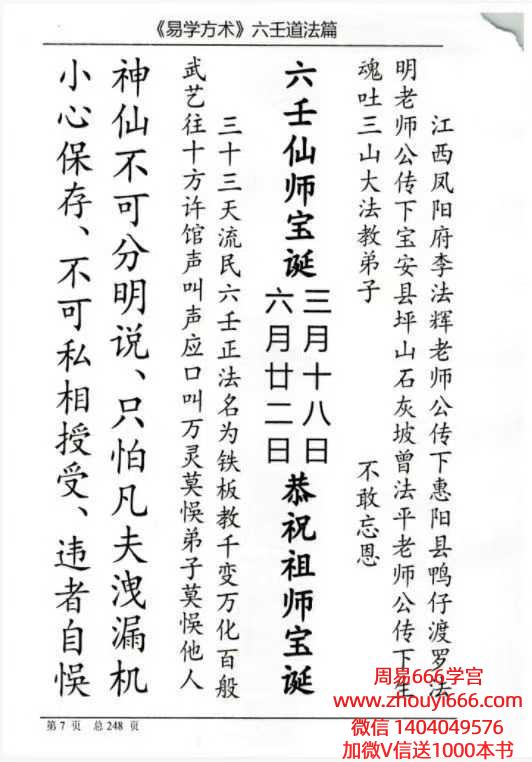 《易学方术》六壬道法篇
江西凤阳府李法辉老师公传下惠阳县鸭仔渡罗法
明老师公传下宝安县坪山石灰坡曾法平老师公传下生
魂吐三山大法教弟子 不敢忘恩
六壬仙师宝诞 三月十八日 六月廿二日 恭祝祖师宝诞
三十三天流民六壬正法名为铁板教千变万化百般
武艺往十方许馆声叫声应口叫万灵莫悮弟子莫悮他人
神仙不可分明说、只怕凡夫洩漏机
小心保存、不可私相授受、违者自悮
第 7 页 总 248 页
周易666学宫
www.zhouyi666.com
微信 1404049576
加微V信送1000本书